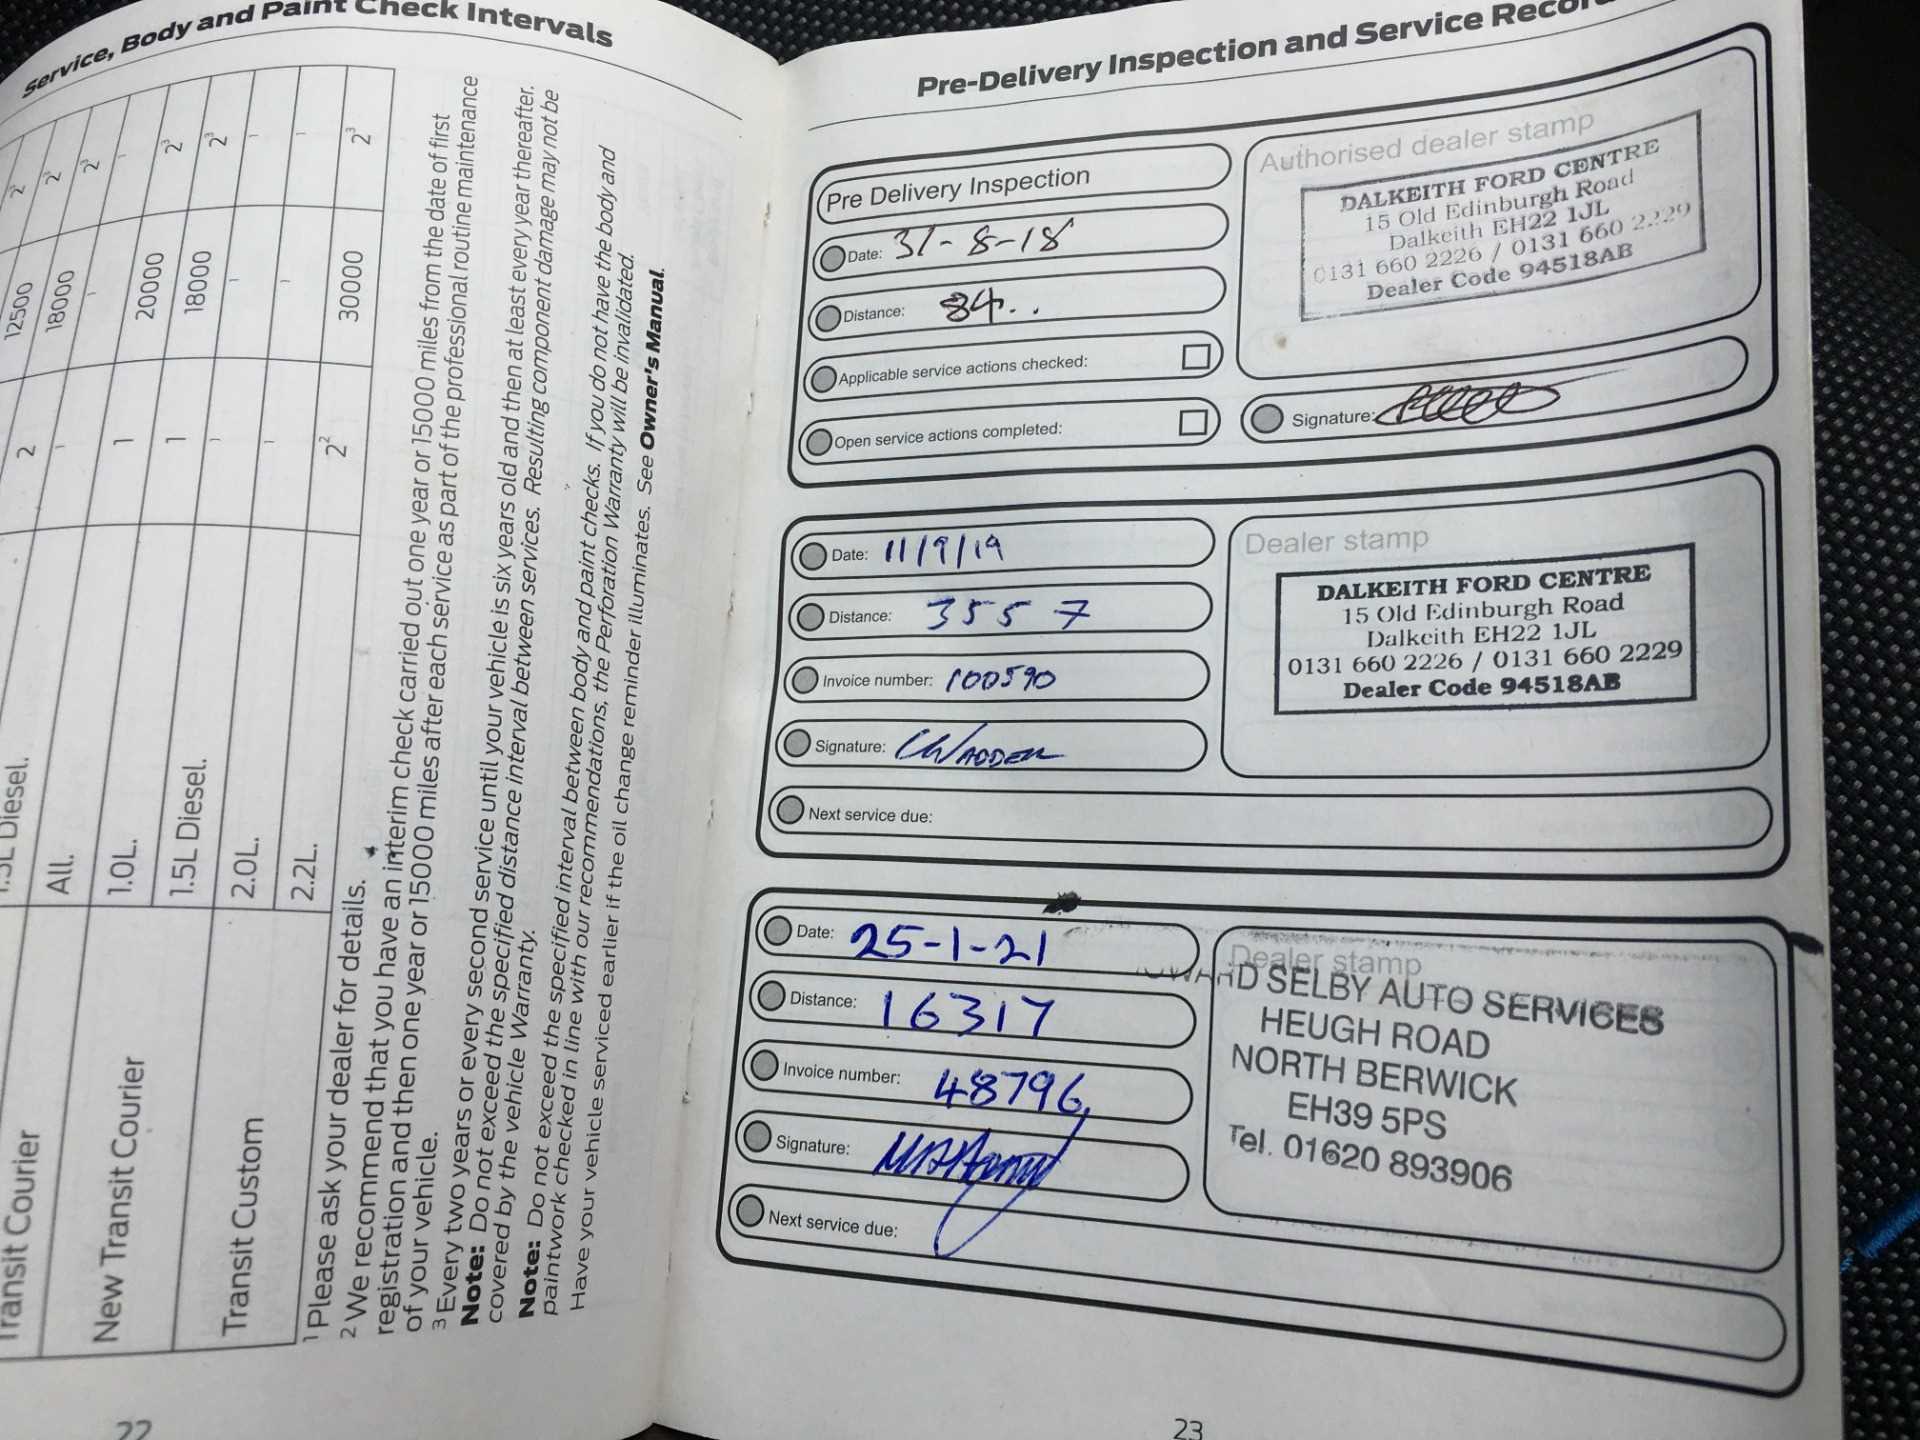 Service, Body and Paint Check Intervals
2³ 2³ 2³ - 2³ 2³ - - 2³
12500 18000 - 20000 18000 - - 30000
2 - 1 1 - - 2²
1.5L Diesel. All. 1.0L. 1.5L Diesel. 2.0L. 2.2L.
Transit Courier
New Transit Courier
Transit Custom
¹ Please ask your dealer for details.
² We recommend that you have an interim check carried out one year or 15000 miles from the date of first
registration and then one year or 15000 miles after each service as part of the professional routine maintenance
of your vehicle.
³ Every two years or every second service until your vehicle is six years old and then at least every year thereafter.
Note: Do not exceed the specified distance interval between services. Resulting component damage may not be
covered by the vehicle Warranty.
Note: Do not exceed the specified interval between body and paint checks. If you do not have the body and
paintwork checked in line with our recommendations, the Perforation Warranty will be invalidated.
Have your vehicle serviced earlier if the oil change reminder illuminates. See Owner's Manual.
22
Pre-Delivery Inspection and Service Record
Pre Delivery Inspection
Date: 31-8-18
Distance: 84..
Applicable service actions checked:
Open service actions completed:
Authorised dealer stamp
DALKEITH FORD CENTRE
15 Old Edinburgh Road
Dalkeith EH22 1JL
0131 660 2226 / 0131 660 2229
Dealer Code 94518AB
Signature:
Date: 11/9/19
Distance: 3557
Invoice number: 100590
Signature:
Next service due:
Dealer stamp
DALKEITH FORD CENTRE
15 Old Edinburgh Road
Dalkeith EH22 1JL
0131 660 2226 / 0131 660 2229
Dealer Code 94518AB
Date: 25-1-21
Distance: 16317
Invoice number: 48796
Signature:
Next service due:
Dealer stamp
SELBY AUTO SERVICES
HEUGH ROAD
NORTH BERWICK
EH39 5PS
Tel. 01620 893906
23